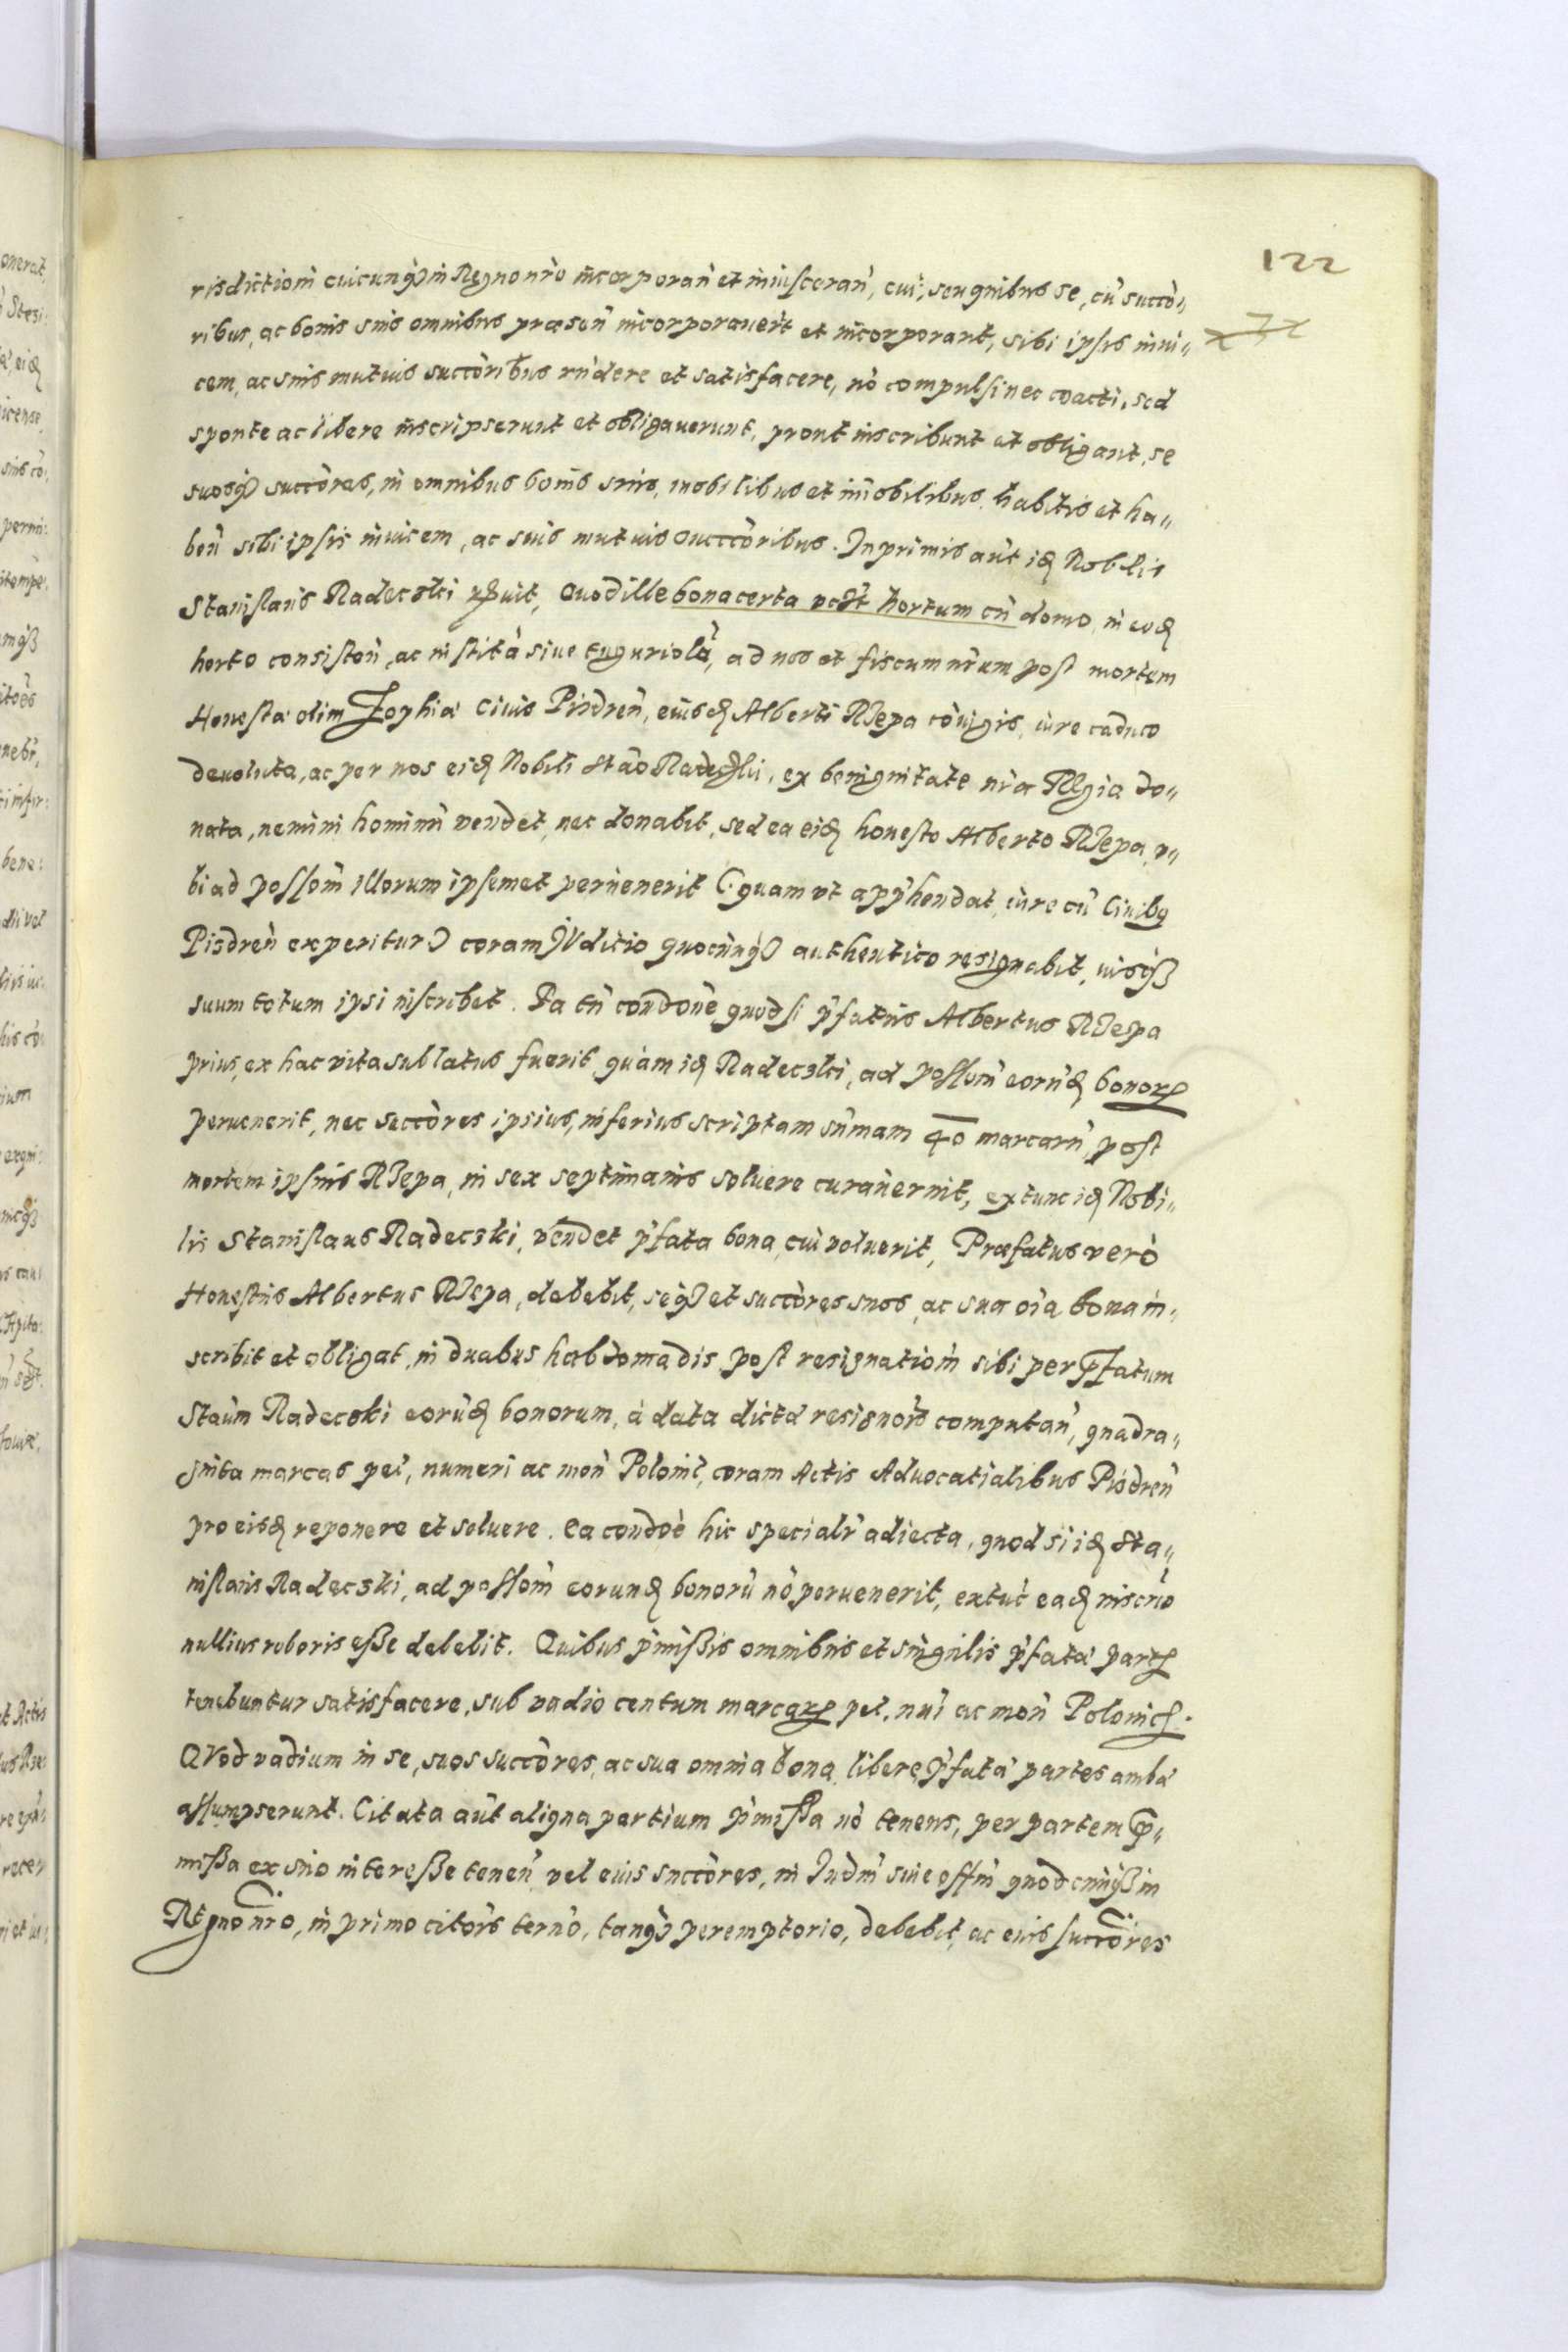 122
risdictioni cuicunq in Regno nro incorporan et inuisceran, cui, seu quibus se, cu succo,,
ribus, ac bonis suis omnibus praesen incorporauerut et incorporant, sibi ipsis inui,,
cem, ac suis mutuis succoribus rndere et satisfacere, no compulsi nec coacti, sed
sponte ac libere inscripserunt et obligauerunt, prout inscribunt et obligant, se
suosq succores, in omnibus bonis suis, mobilibus et imobilibus, habitis et ha,,
ben sibi ipsis inuicem, ac suis mutuis succcoribus. Inprimis aut id Nobilis
Stanislaus Radeczki, Quod ille bona certa vczt hortum cu domo, in eod
horto consisten, ac instita siue tuguriola, ad nos et fiscum nrum post mortem
Honesta olim Zophia Ciuis Pisdren, eiusd Alberti Rzepa coniugis, iure caduco
deuoluta, ac per nos eid Nobili Stao Radeczki, ex benignitate nra Regia do,,
nata, nemini hominu vendet, nec donabit, sed ea eid honesto Alberto Rzepa, v,,
bi ad possom illorum ipsemet peruenerit (quam vt apphendat, iure cu Ciuibq
Pisdren experitur) coram Juditio quocunq authentico resignabit, iusq
suum totum ipsi inscribet. Ea tn condone quod si pfatus Albertus Rzepa
prius, ex hac vita sublatus fuerit, quam id Radeczki, ad possom eorud bonor
peruenerit, nec seccores ipsius, inferius scriptam sumam 40 marcaru, post
mortem ipsius Rzepa, in sex septimanis soluere curauerint, extunc id Nobi,,
lis Stanislaus Radeczki, vendet pfata bona, cui voluerit, Praefatus vero
Honestus Albertus Rzepa, debebit, seq et succores suos, ac sua oia bona in,,
scribit et obligat, in duabus hebdomadis post resignatiom sibi per pfatum
Staum Radeczki eorud bonorum, a data dicta resignois computan, quadra,,
ginta marcas pec, numeri ac mon Polonic, coram Actis Aduocatialibus Pisdren
pro eisd reponere et soluere. Ea condoe hic specialr adiecta, quod si id Sta,,
nislaus Radeczki, ad possom eorund bonoru no peruenerit, extuc ead inscrio
nullius roboris esse debebit. Quibus pmissis omnibus et singulis pfata part
tenebuntur satisfacere, sub vadio centum marcar pec, nui ac mon Polonic.
QVod vadium in se, suos succores, ac sua omnia bona, libere pfata partes amba
assumpserunt. Citata aut aliqua partium pmissa no tenens, per partem p,,
missa ex suo interesse tenen vel eius succores, in Judm siue offm quodcunq in
Regno nro, in primo citois terno, tanq peremptorio, debebit, ac eius succores